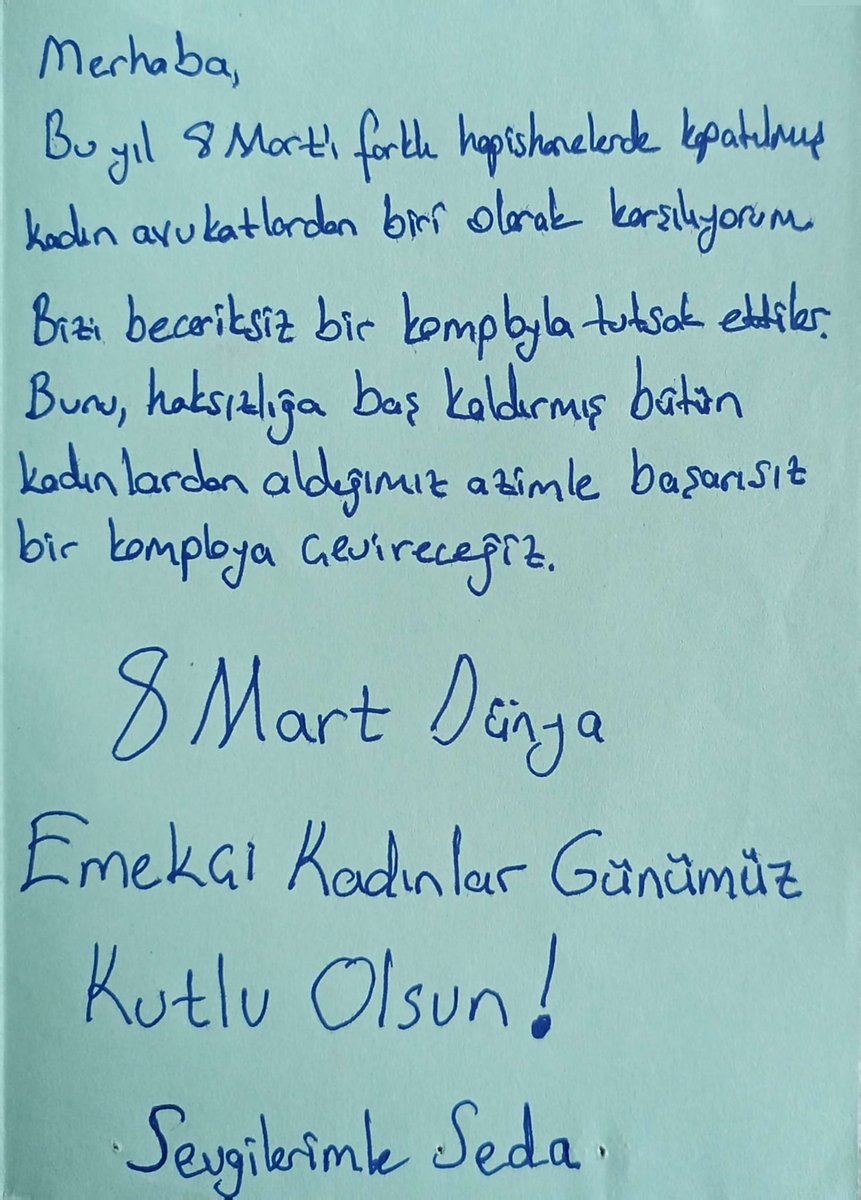 Merhaba,
Bu yıl 8 Mart'ı farklı hapishanelerde kapatılmış
kadın avukatlardan biri olarak karşılıyorum
Bizi beceriksiz bir komployla tutsak ettiler.
Bunu, haksızlığa baş kaldırmış bütün
kadınlardan aldığımız azimle başarısız
bir komploya çevireceğiz.
8 Mart Dünya
Emekçi Kadınlar Günümüz
Kutlu Olsun!
Sevgilerimle Seda